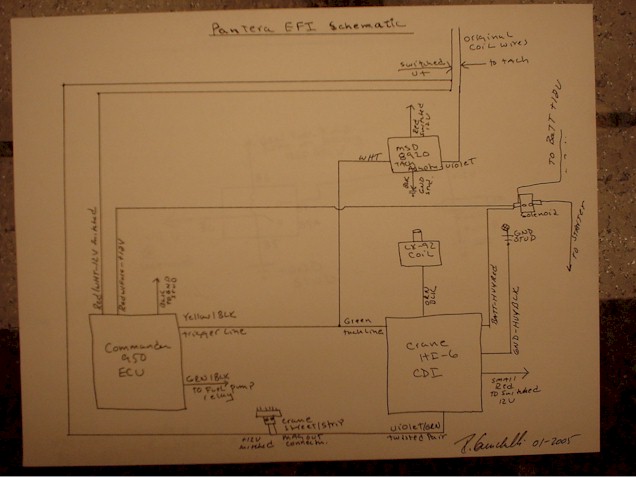 Pantera EFI Schematic
original
coil wires
switched
V+
to tach
TO BATT +12V
Red
switched
12V
MSD
8920
TACH
WHT
violet
BLK
GND
stud
solenoid
TO STARTER
GND
STUD
LX-92
COIL
ORN
BLK
BATT-HVY RED
GND-HVY BLK
Red/WHT-12V switched
BLK
Commander
950
ECU
Yellow/BLK
trigger line
GRN/BLK
TO Fuel pump
relay
Green
tach line
Crane
HI-6
CDI
SMALL
Red
TO Switched
12V
Violet/GRN
twisted Pair
+12V
switched
crane
connect.
01-2005